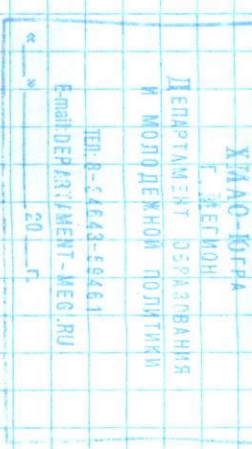 ХМАО-ЮГРА
Г. МЕГИОН
ДЕПАРТАМЕНТ ОБРАЗОВАНИЯ
И МОЛОДЕЖНОЙ ПОЛИТИКИ
ТЕЛ: 8-34643-59461
E-mail:DEPARTAMENT-MEG.RU
« » 20 г.